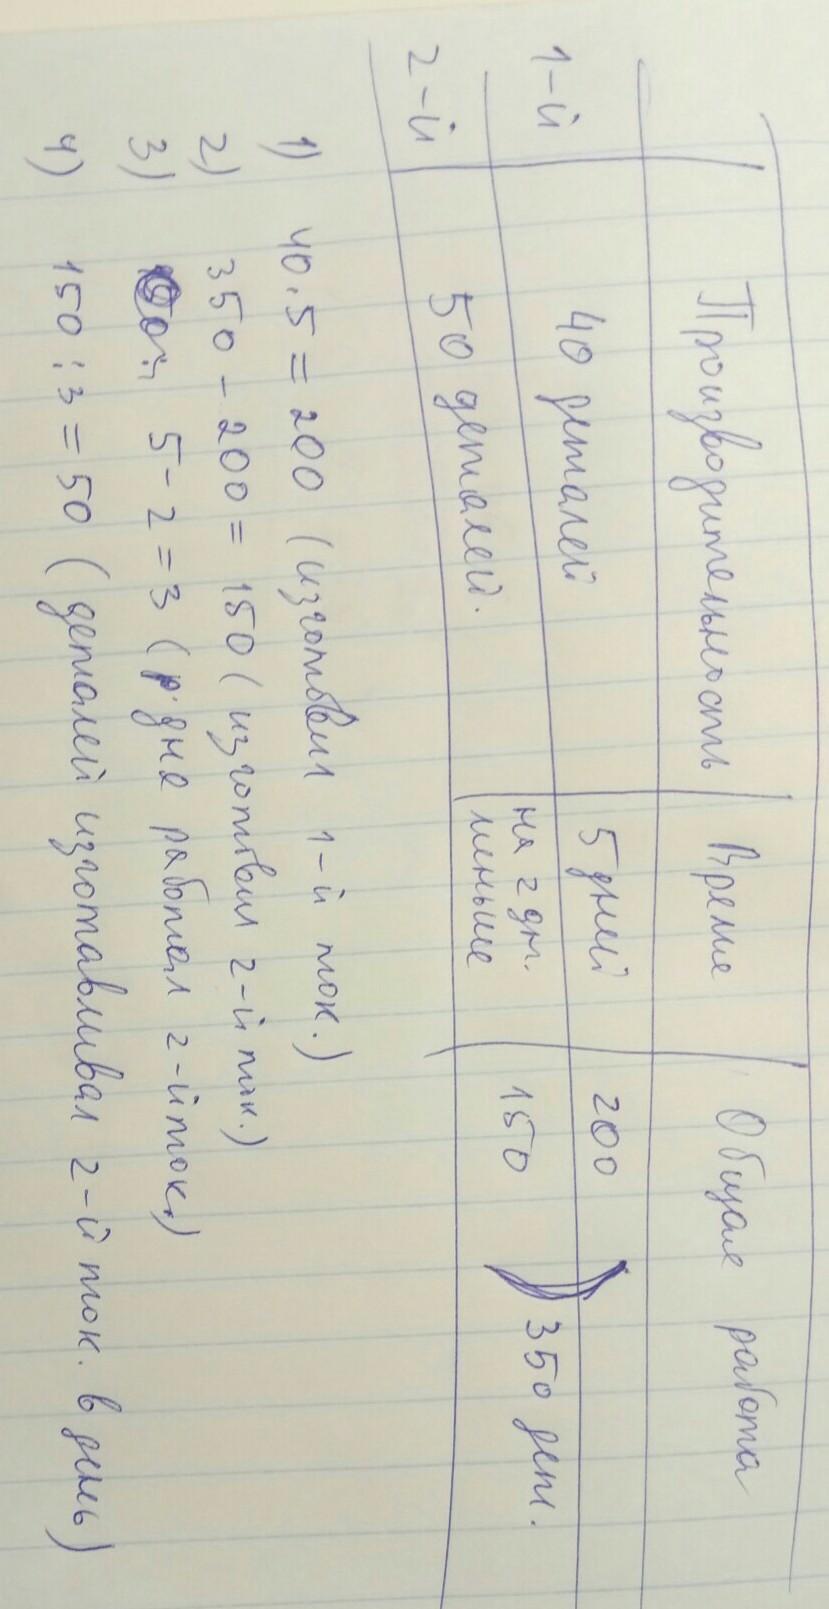 Производительность Время Общая работа
1-й 40 деталей 5 дней 200
2-й 50 деталей. на 2 дн. меньше 150 350 дет.
1) 40 · 5 = 200 (изготовил 1-й ток.)
2) 350 - 200 = 150 (изготовил 2-й ток.)
3) 5 - 2 = 3 (дня работал 2-й ток.)
4) 150 : 3 = 50 (деталей изготавливал 2-й ток. в день)